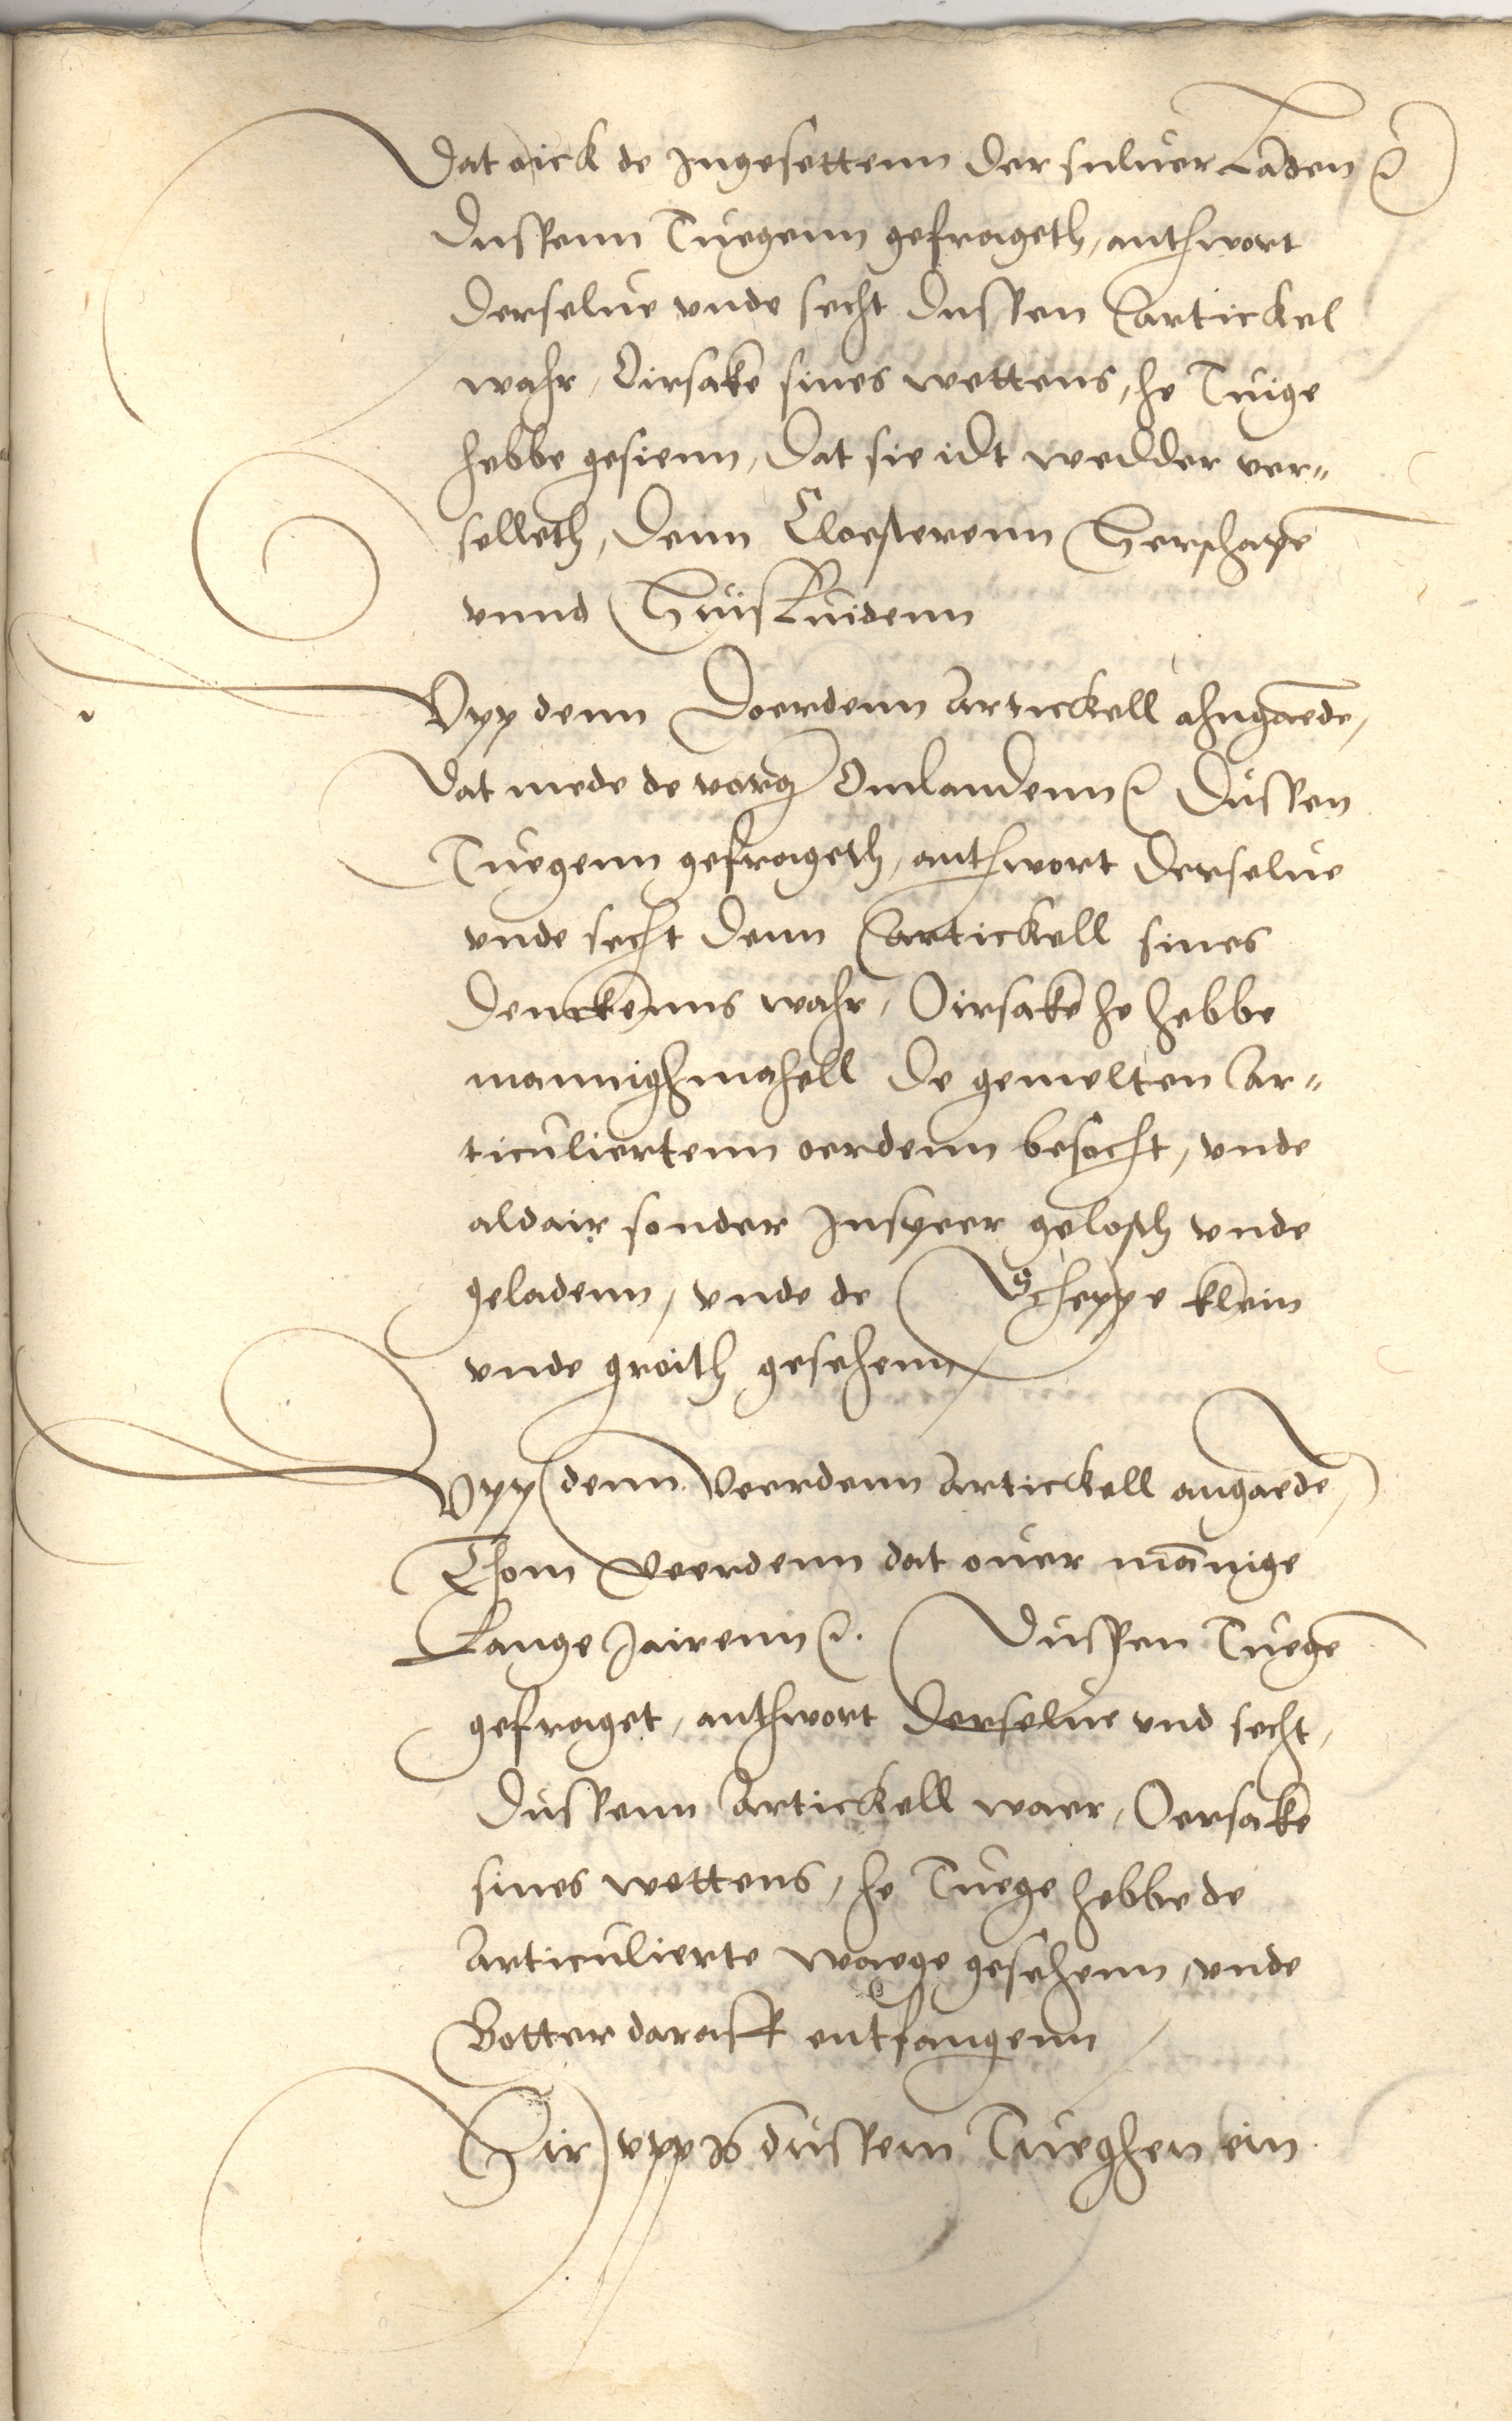 Dat oick de Ingesettenn der suluer Laden ꝛc
dussenn Tuegenn gefrageth, anthwort
derselue vnde secht dussen Cartickel
wahr, Oirsake sines wettens, he Tuige
hebbe gesienn, dat sie idt wedder ver„
selleth, denn Cloesterenn Herschape
vnnd Huisluidenn
Vpp denn Doerdenn Artickell ahngaede,
Dat mede de vorg Omlandenn ꝛc Dussen
Tuegenn gefrageth, anthwort derselue
vnde secht denn Cartickell sines
Denckenns wahr, Oirsake he hebbe
mannighmahell de gemelten Ar„
ticuliertenn oerdenn besocht, vnde
aldair sonder Inspeer geloseh vnde
geladenn, vnde de Scheppe klein
vnde groith gesehenn
Vpp denn Veerdenn Artickell angaede,
Thom Veerdenn dat ouer mannige
Lange Jairenn ꝛc. Dussen Tuege
gefraget, anthwort derselue vnd secht,
Dussenn Artickell waer, Oersake
sines wettens, he Tuege hebbe de
Articulierte waege gesehenn, vnde
Botter daraff entfangenn
Hir vpp is dussem Tueghen ein